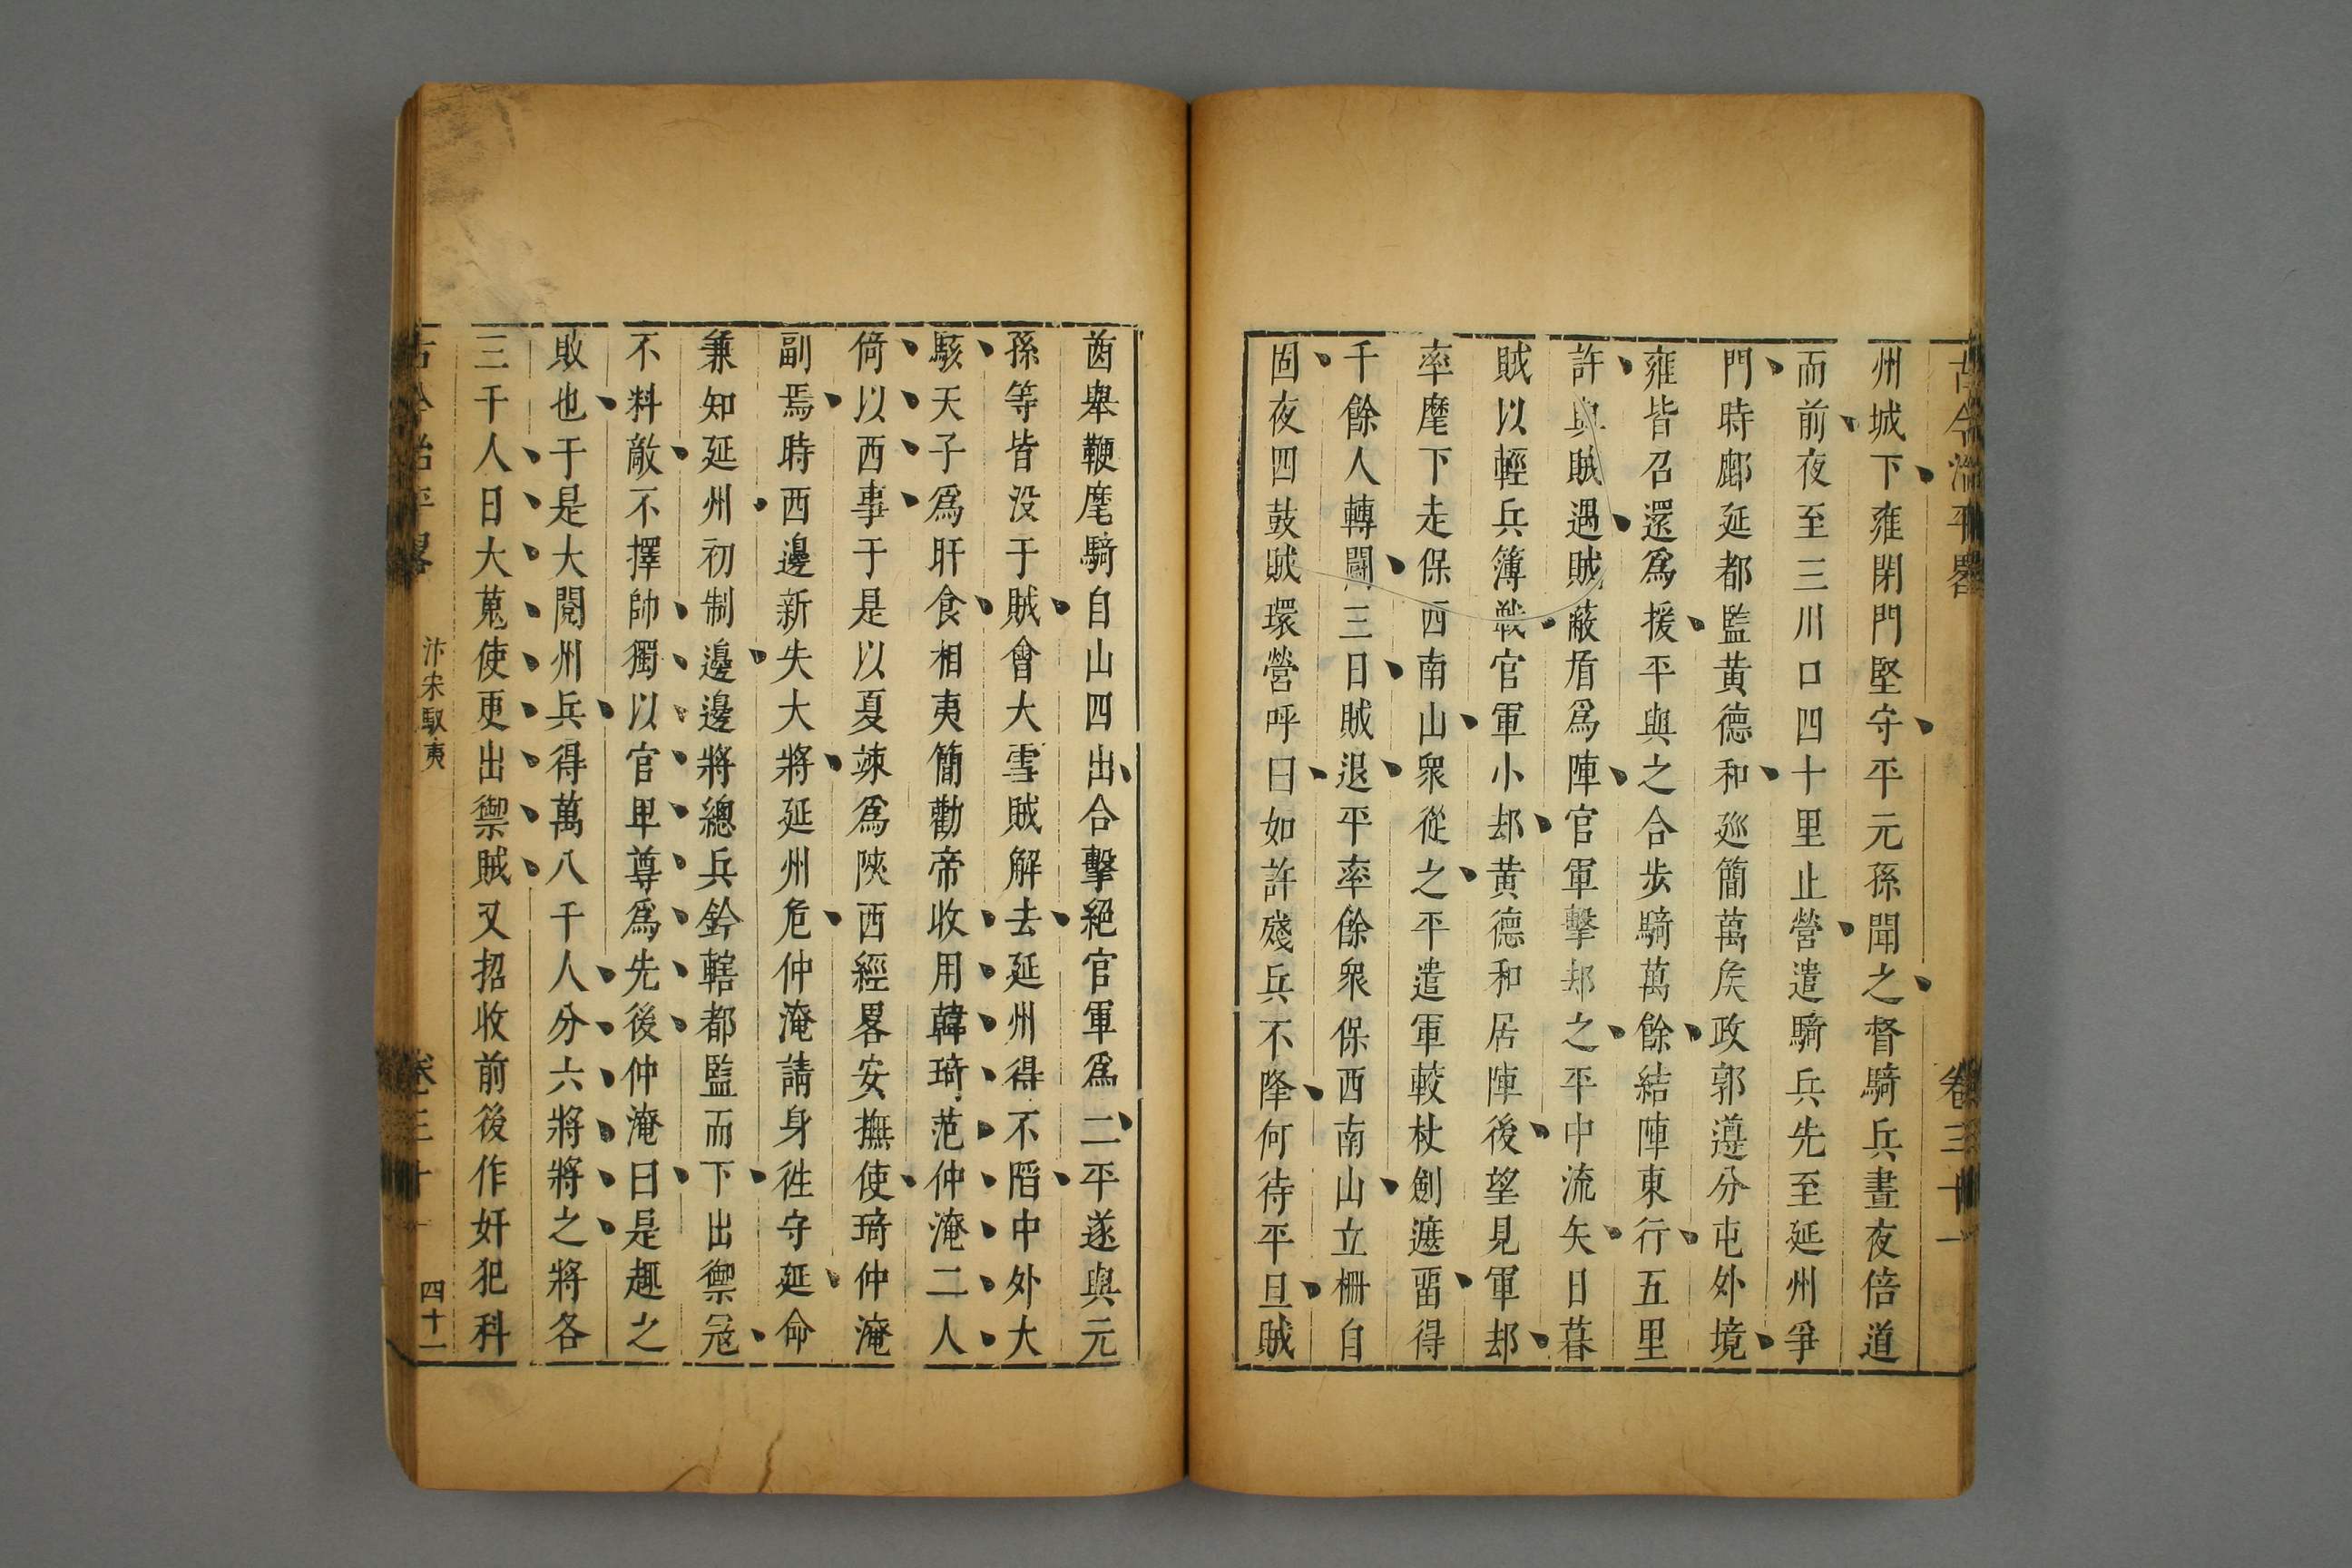 古今治平畧 卷三十一
州城下雍閉門堅守平元孫聞之督騎兵晝夜倍道
而前夜至三川口四十里止營遣騎兵先至延州爭
門時鄜延都監黄德和廵簡萬矦政郭遵分屯外境
雍皆召還爲援平與之合步騎萬餘結陣東行五里
許與賊遇賊蔽盾爲陣官軍擊却之平中流矢日暮
賊以輕兵簿戰官軍小却黄德和居陣後望見軍却
率麾下走保西南山衆從之平遣軍較杖劍遮畱得
千餘人轉鬪三日賊退平率餘衆保西南山立柵自
固夜四鼓賊環營呼曰如許殘兵不降何待平旦賊
酋舉鞭麾騎自山四出合擊絕官軍爲二平遂與元
孫等皆没于賊會大雪賊解去延州得不䧟中外大
駭天子爲旰食相夷簡勸帝收用韓琦范仲淹二人
倚以西事于是以夏竦爲陜西經畧安撫使琦仲淹
副焉時西邊新失大將延州危仲淹請身徃守延命
兼知延州初制邊邊將總兵鈐轄都監而下出禦冦
不料敵不擇帥獨以官卑尊爲先後仲淹曰是趣之
敗也于是大閱州兵得萬八千人分六將將之將各
三千人日大蒐使更出禦賊又招收前後作奸犯科
古今治平畧 汴宋馭夷 卷三十一 四十一